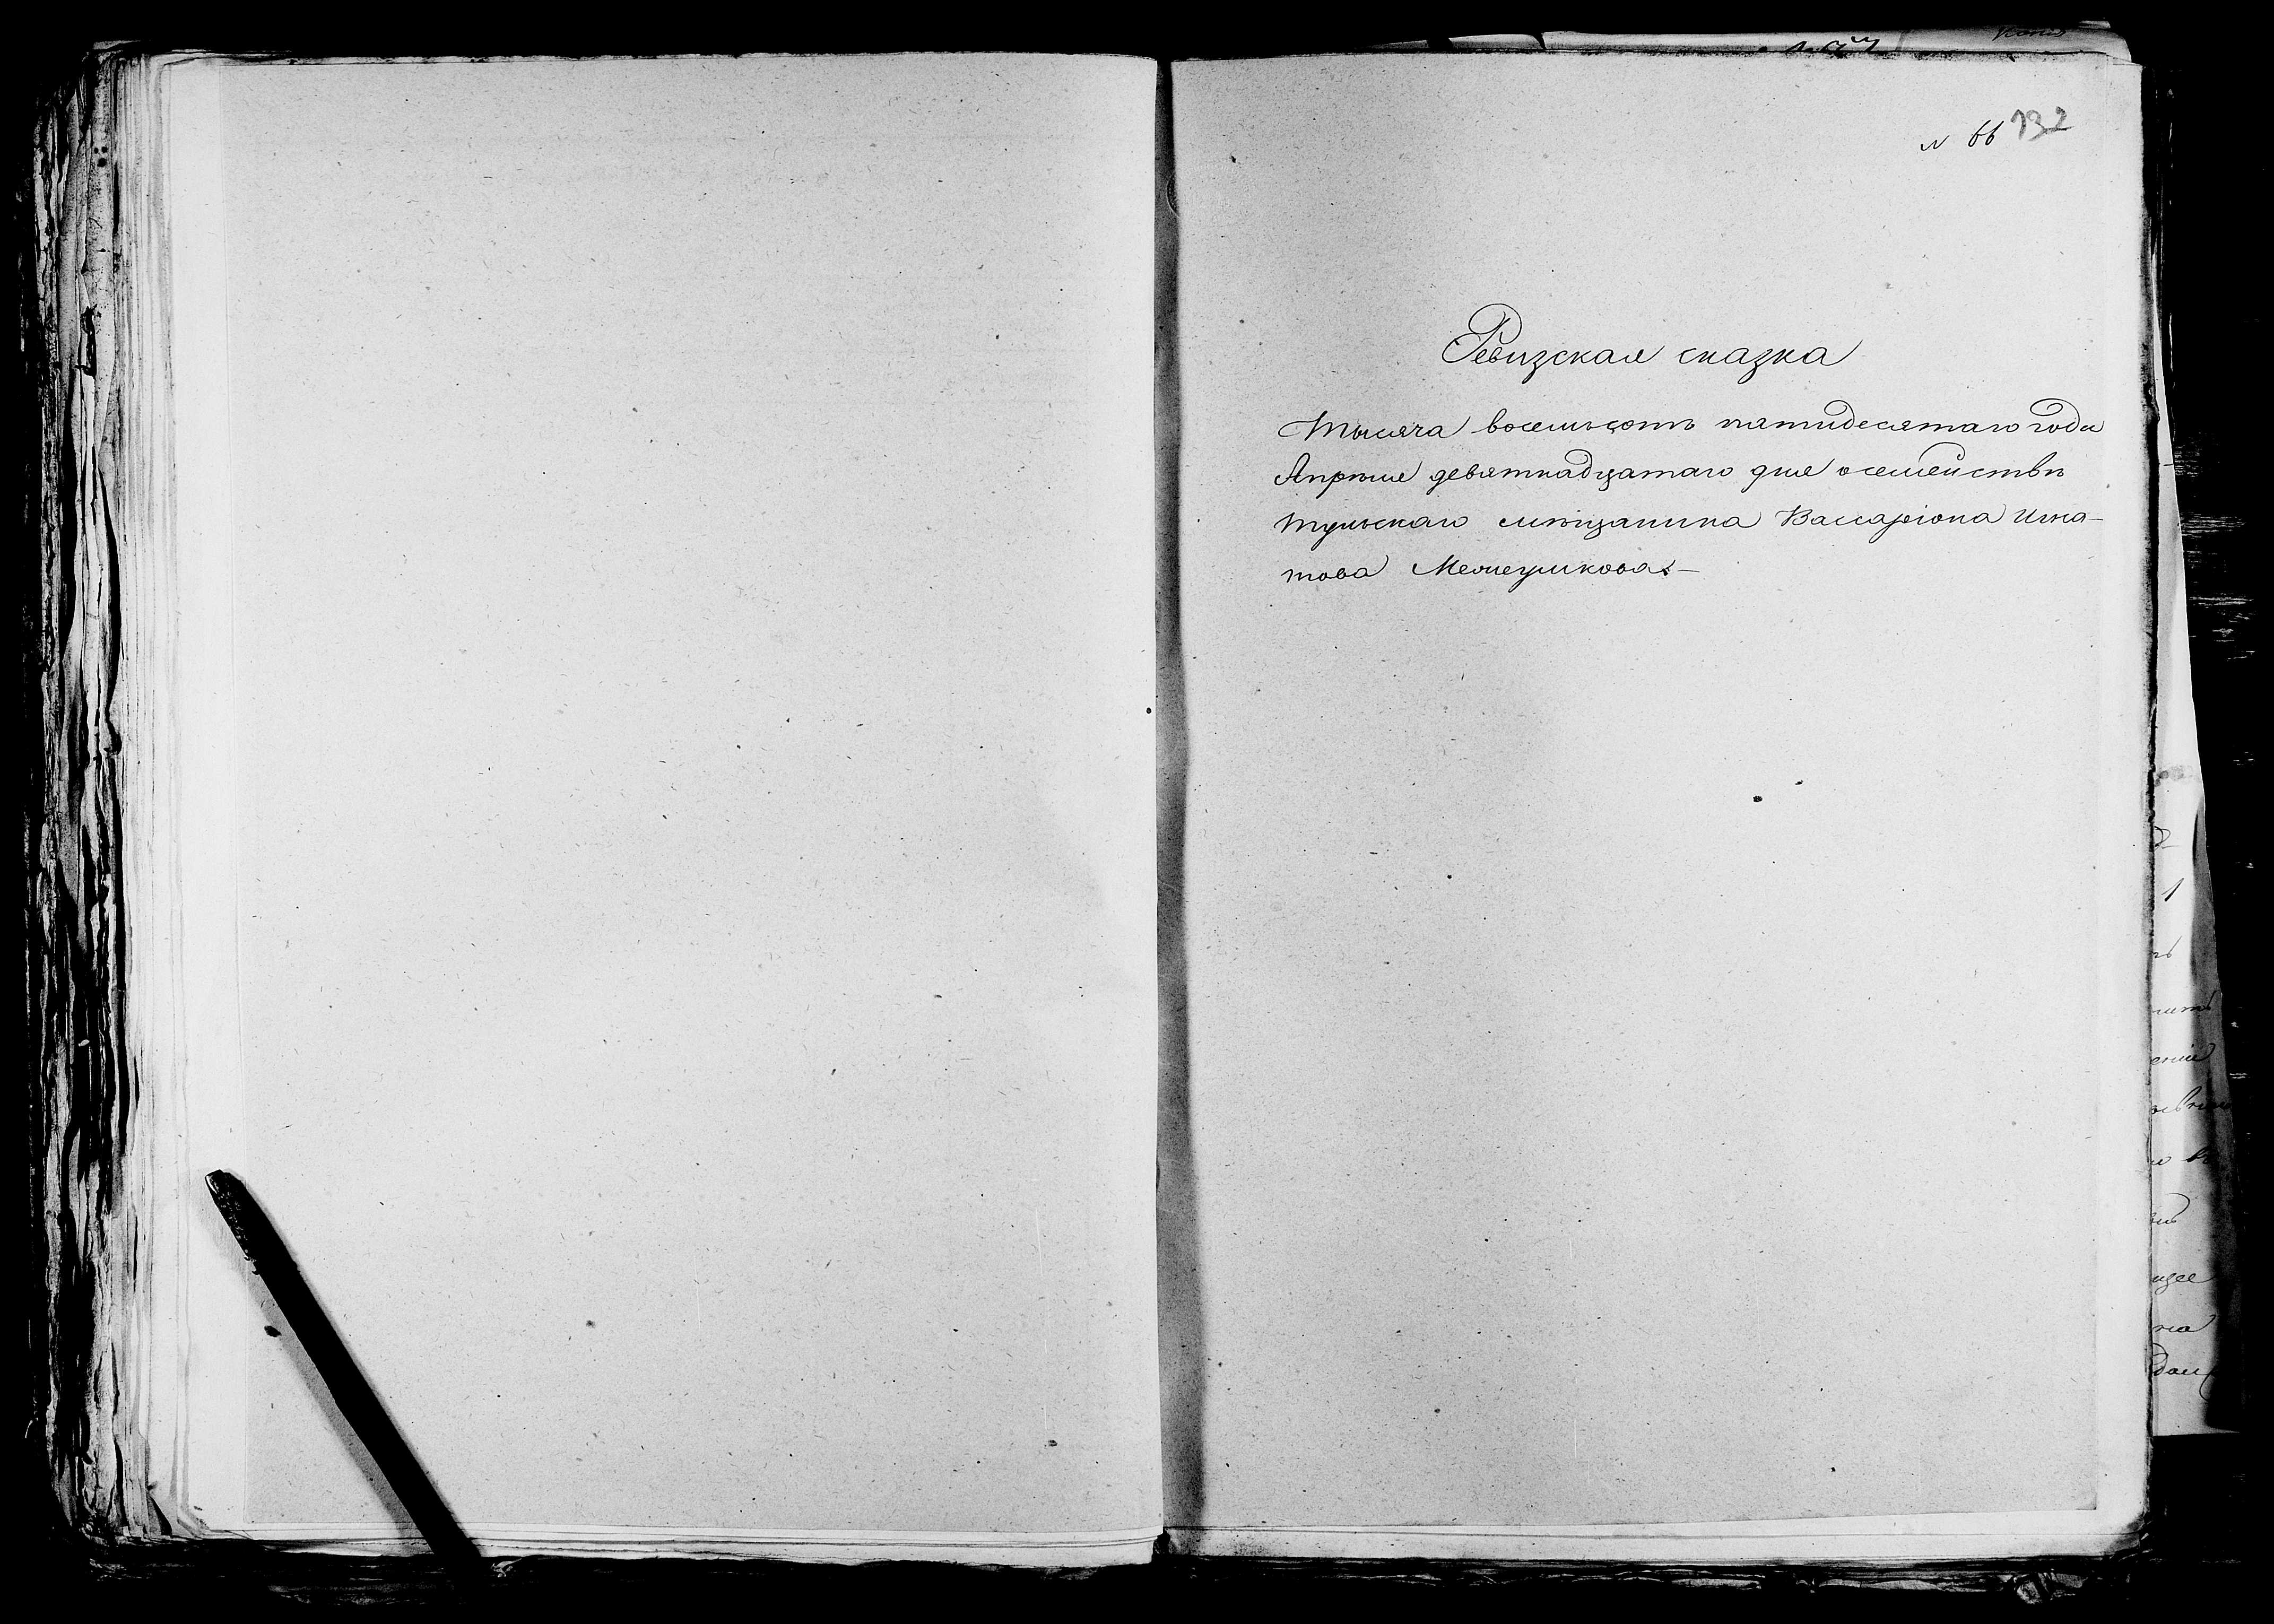 N 66 132
Ревизская сказка
Тысяча восемьсотъ пятидесятаго года
Апрѣля девятнадцатаго дня о семействѣ
тульскаго мѣщанина Вассаріона Игна-
това